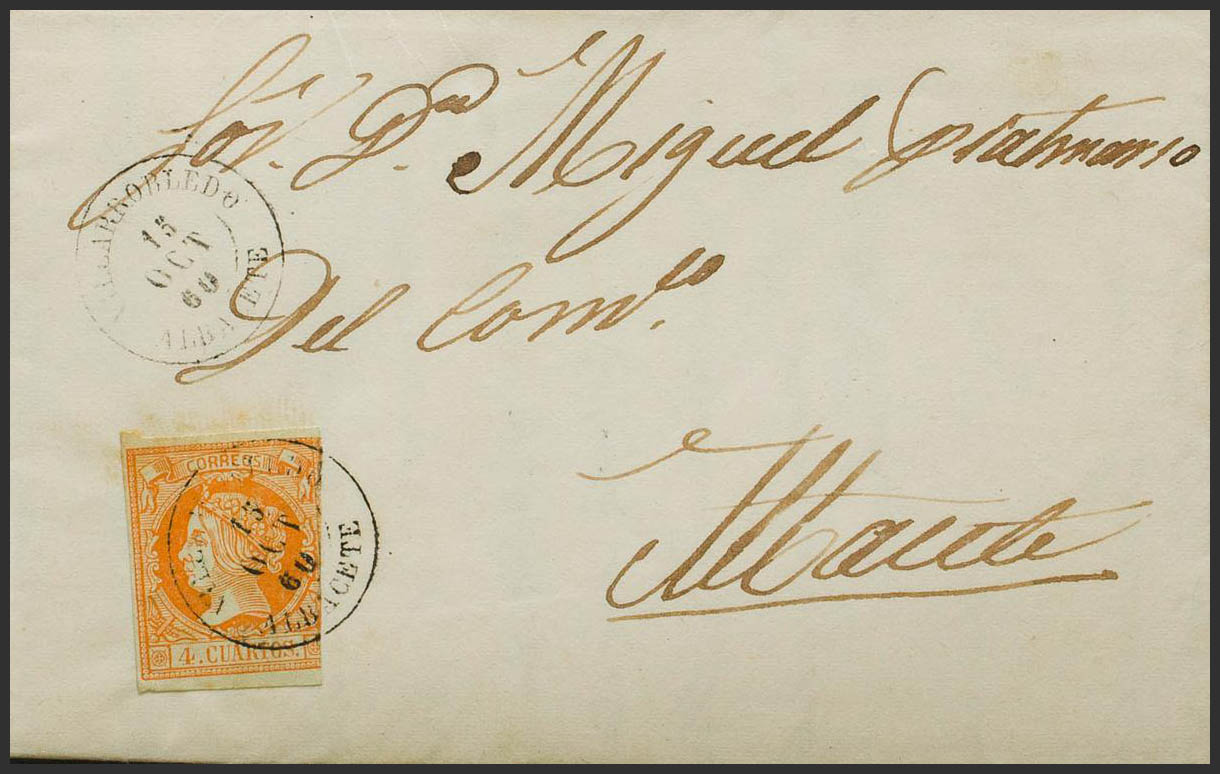 Sor. Dn. Miguel
Del Comco.
Albacete
VILLARROBLEDO
15
OCT
60
ALBACETE
CORREOS
15
OCT
60
ALBACETE
4. CUARTOS.